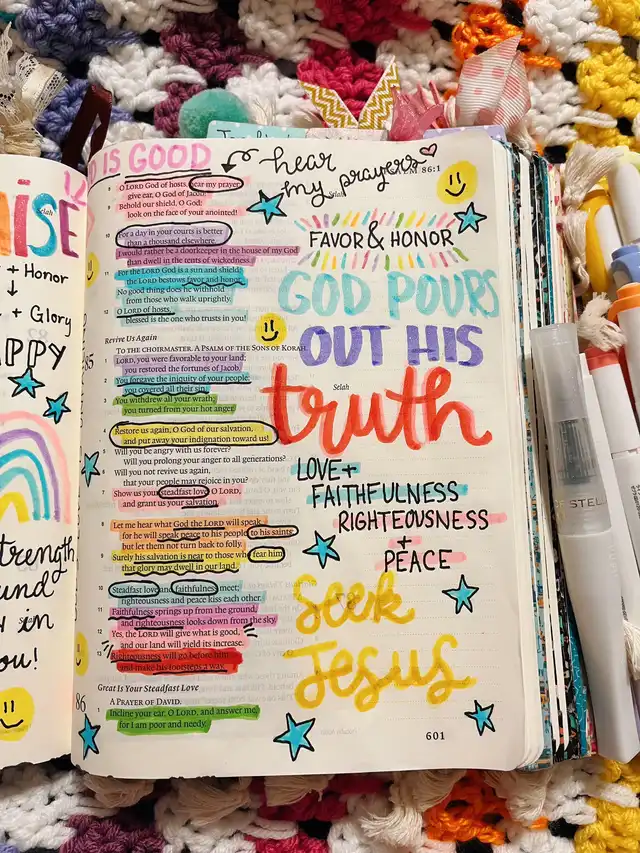 AISE
+ Honor
↓
+ Glory
APPY
strength
in
you!
D IS GOOD
hear
my prayers
PSALM 86:1
8 O LORD God of hosts, hear my prayer;
give ear, O God of Jacob! Selah
9 Behold our shield, O God;
look on the face of your anointed!
10 For a day in your courts is better
than a thousand elsewhere.
I would rather be a doorkeeper in the house of my God
than dwell in the tents of wickedness.
11 For the LORD God is a sun and shield;
the LORD bestows favor and honor.
No good thing does he withhold
from those who walk uprightly.
12 O LORD of hosts,
blessed is the one who trusts in you!
Revive Us Again
85 TO THE CHOIRMASTER. A PSALM OF THE SONS OF KORAH.
1 LORD, you were favorable to your land;
you restored the fortunes of Jacob.
2 You forgave the iniquity of your people;
you covered all their sin. Selah
3 You withdrew all your wrath;
you turned from your hot anger.
4 Restore us again, O God of our salvation,
and put away your indignation toward us!
5 Will you be angry with us forever?
Will you prolong your anger to all generations?
6 Will you not revive us again,
that your people may rejoice in you?
7 Show us your steadfast love, O LORD,
and grant us your salvation.
8 Let me hear what God the LORD will speak,
for he will speak peace to his people, to his saints;
but let them not turn back to folly.
9 Surely his salvation is near to those who fear him,
that glory may dwell in our land.
10 Steadfast love and faithfulness meet;
righteousness and peace kiss each other.
11 Faithfulness springs up from the ground,
and righteousness looks down from the sky.
12 Yes, the LORD will give what is good,
and our land will yield its increase.
13 Righteousness will go before him
and make his footsteps a way.
Great Is Your Steadfast Love
86 A PRAYER OF DAVID.
1 Incline your ear, O LORD, and answer me,
for I am poor and needy.
FAVOR & HONOR
GOD POURS
OUT HIS
truth
LOVE +
FAITHFULNESS
RIGHTEOUSNESS
+
PEACE
Seek
Jesus
601